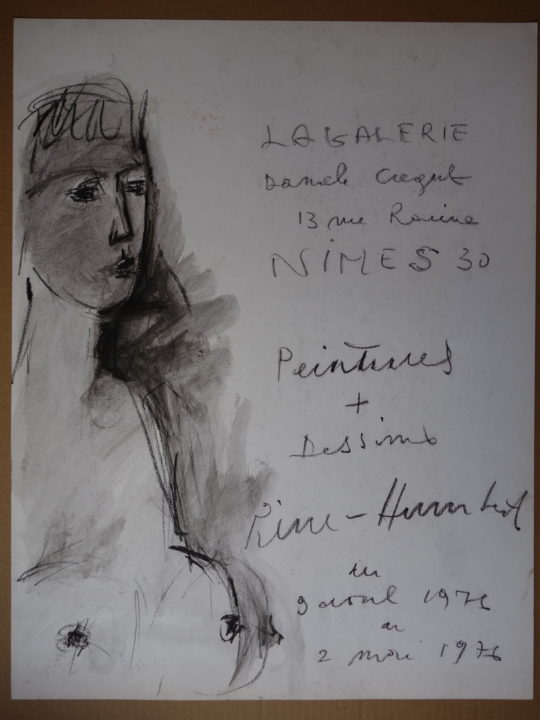 LA GALERIE
13 rue Racine
NIMES 30
Peintures
+
Dessins
Humbert
du
9 avril 1976
au
2 mai 1976